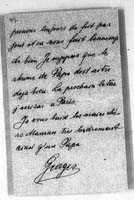 prenons toujours du fort par
tous et ça nous fait beaucoup
de bien. J'espère que le
rhume de Papa doit être
déjà bien. La prochaine lettre
j'écrirai à Paris.
Je vous baise les mains chère
Maman très tendrement
ainsi qu'à Papa
Georges